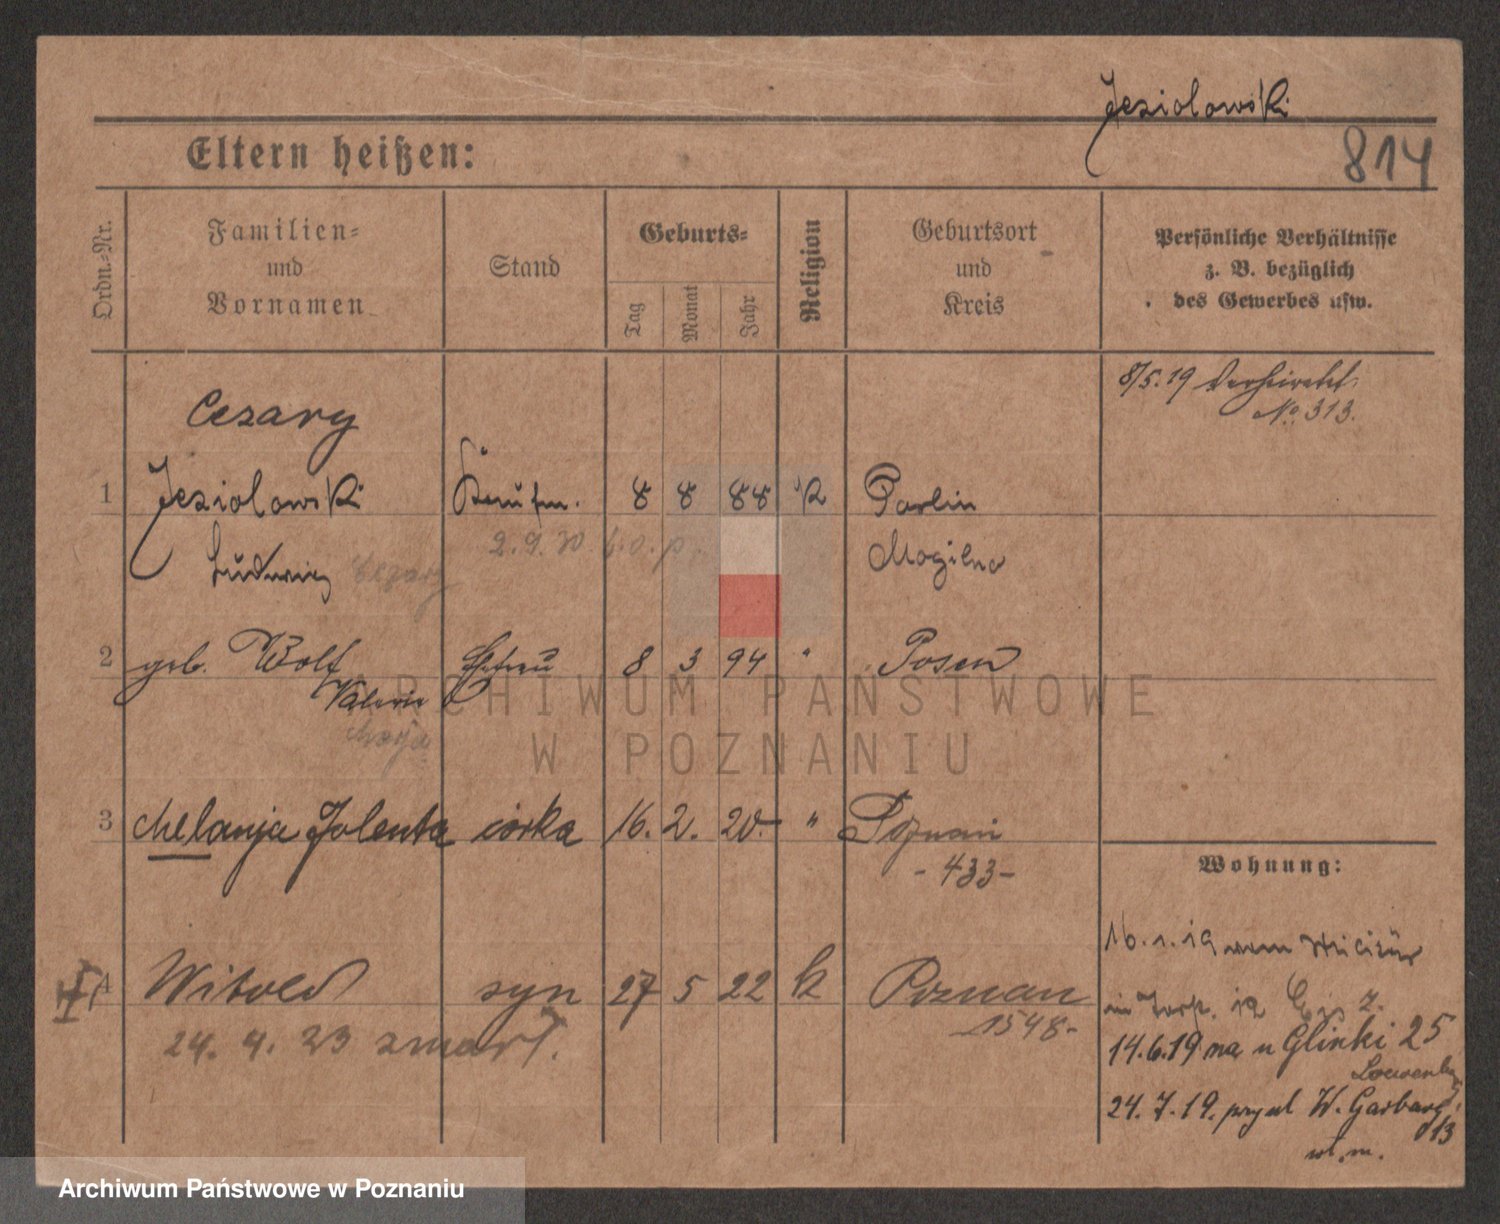 Jeziolowski
Eltern heißen:
814
Ordn.=Nr.
Familien=
und
Vornamen
Stand
Geburts=
Tag
Monat
Jahr
Religion
Geburtsort
und
Kreis
Persönliche Verhältnisse
z. B. bezüglich
des Gewerbes usw.
8/5.19 Verheiratet
No. 313.
Cezary
1 Jeziolowski Kaufm. 8 8 88 K Parlin
Ludwig Cezary 2.9.20 Mogilno
2 geb. Wolf Ehefrau 8 3 94 " Posen
Valerie
ARCHIWUM PAŃSTWOWE
W POZNANIU
3 Melanja Jolenta córka 16. 2. 20. " Poznań
- 433 -
Wohnung:
16.1.19 vom Militär
4 Witold syn 27 5 22 k Poznań
1548-
24. 4. 23 zmarł.
14.6.19 na u Glinki 25
24.7.19. W. Garbary
13
Archiwum Państwowe w Poznaniu